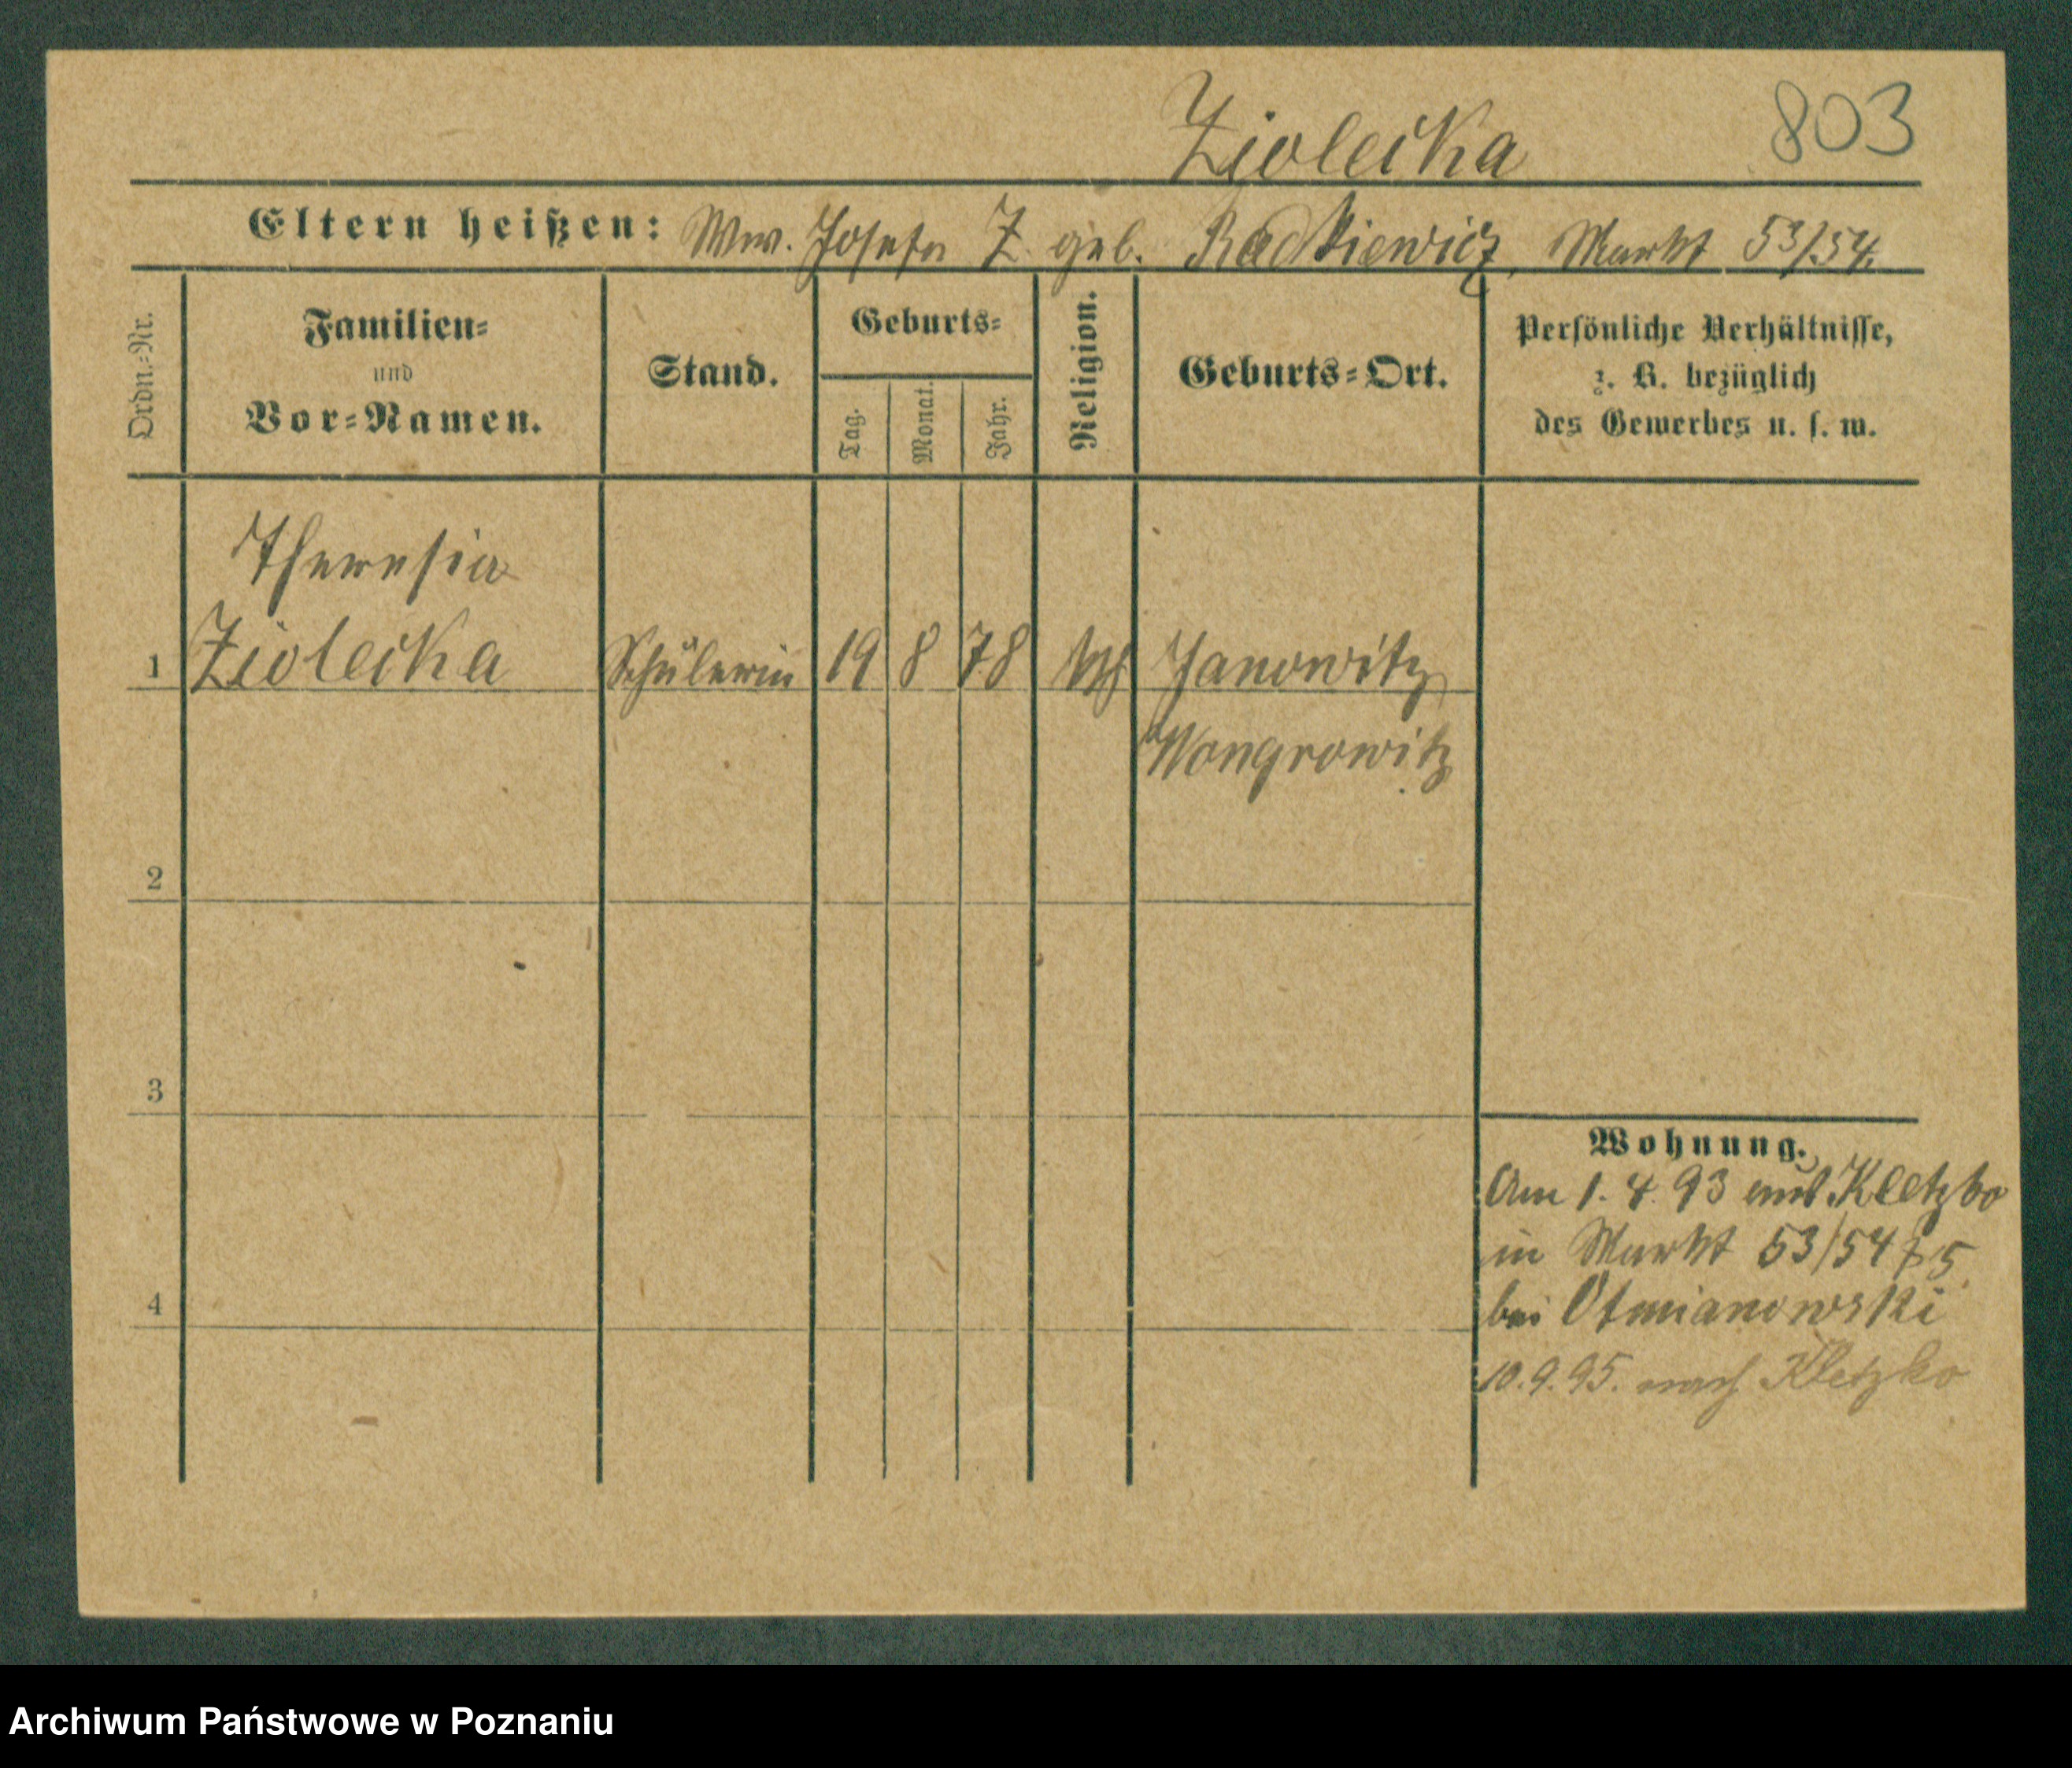 Ziolecka 803
Eltern heißen: Ww. Josefa Z. geb. Radkiewicz, Markt 53/54.
Ordn.-Nr.
Familien-
und
Vor-Namen.
Stand.
Geburts-
Tag.
Monat.
Jahr.
Religion.
Geburts-Ort.
Persönliche Verhältnisse,
z. B. bezüglich
des Gewerbes u. s. w.
Theresia
1 Ziolecka Schülerin 19 8 78 Janowitz
Wongrowitz
2
3
4
Wohnung.
Am 1. 4. 93 aus Kletzko
in Markt 53/54
bei Otmianowski
10.9.95. nach Kletzko
Archiwum Państwowe w Poznaniu